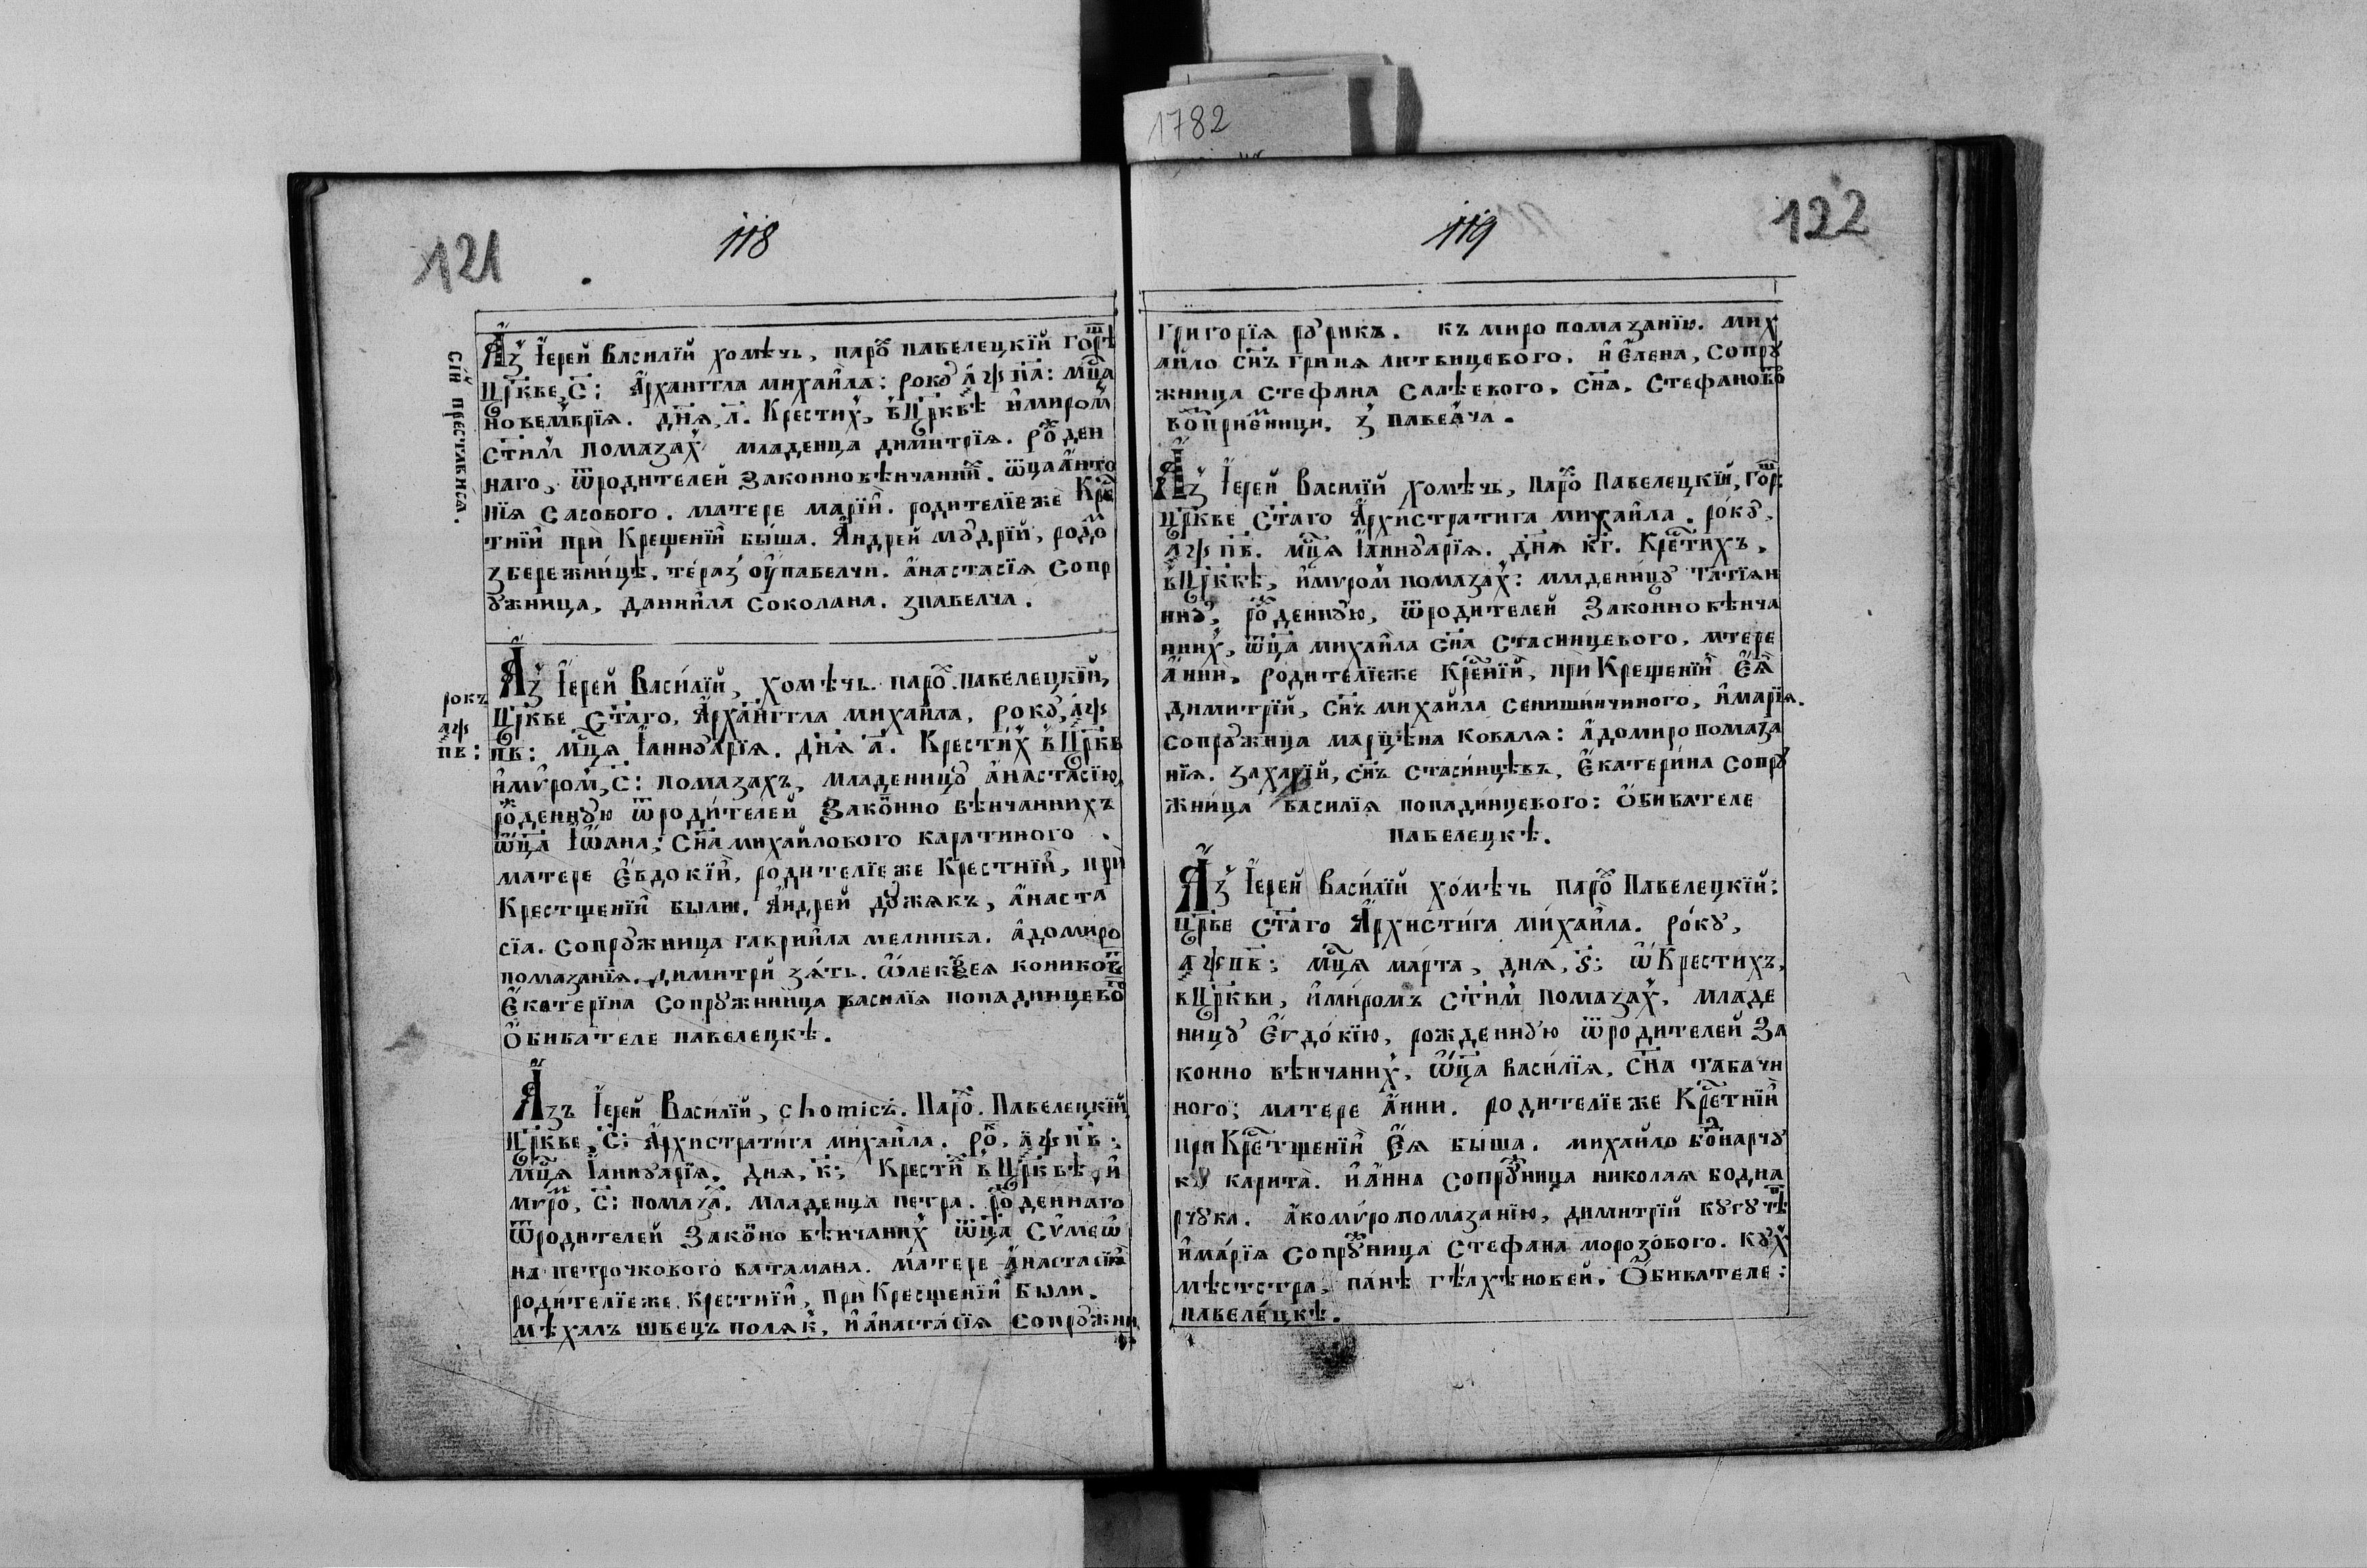 1782
121
118
Аз Іерей Василїй хомѣчь, паро павелецкїй горѣ
Цркве, С: Архангла михайла: року аѱпа: мца
новемврїя. дня, л. Крестих, в Црквѣ и миром
стим помазах младенца димитрїя. рожден
наго, ѿродителей Законновѣнчаний. ѿца Анто
нїя Сасового. матере марїй. родителїеже Кре
тнїи при Крещенїи быша. Андрей мудрїй, родо
з бережницѣ. тераз оу павелчи. анастасїя Сопр
ужница, данийла Соколана. з павелча.
Сїй преставися.
Аз Іерей Василїй, хомѣчь. паро. павелецкїй,
Цркве Стаго, Архангла михайла, року, аѱ
пв: мца Іаннуарїя. дня л. Крестих в Цркв
и мѵром, С: помазахъ, младеницу анастасїю,
рожденную ѿродителей Законно вѣнчаннихъ
ѿца Іѡана, Сна михайлового каратиного.
матере Евдокїй, родителїеже Крестнїи, при
Крестщенїи были. Андрей дужакъ, анаста
сїя. сопружница гаврийла мелника. адомиро
помазанїя. димитрй зять. Ѡлекѯея коников
Екатерїна Сопружниица василїя попадинцево
Обивателе павелецкѣ.
рокъ
аѱ
пв:
Азъ Іерей Василїй, chomicz. Паро. Павелецкїй
Цркве, С: Архистратига михайла. ро, аѱпв:
мця Іаннуарїя. дня, к; Крести в Црквѣ, и
мѵро, С: помаза. младенца петра. рожденнаго
ѿродителей Законо вѣнчаних ѿца Сѵмеѡ
на петрочкового ватамана. матере анастасїи
родителїеже. Крестнїи, при Кресщенїи были.
мѣхалъ швецъ поляк, и анастасїя Сопружни
119
122
григорїя рурика. къ миро помазанїю. мих
айло снъ гриня литвицевого. и Елена, Сопру
жница Стефана Салѣевого, сна. Стефаново
воприемници. з павелча.
Аз Іерей Василїй хомѣчь, паро Павелецкїй, гор:
Цркве Стаго Архистратига михайла. року,
аѱпв. мця Іаннуарїя. дня кг. Кретихъ,
в Црквѣ, и мѵром помазах: младеницу татїан
нну, рожденную, ѿродителей Законно вѣнча
нних, ѿца михайла сна Стасинцевого, мтере
Анни, родителїеже Кренїй, при Крещенїи Ея
димитрїй, снъ михайла Сенишинчиного, и марїя.
сопружница марцѣна коваля: адомиро помаза
нїя. захарїй, снъ стасинцѣвъ, Екатерина сопру
жница василїя попадинцевого: Обивателе
павелецкѣ.
Аз Іерей Василїй хомѣчь паро Павелецкїй:
црве Стаго Архистига михайла. року,
аѱпв: мця марта, дня, ѕ: ѡКрестихъ,
в Цркви, и миромъ стим помазах, младе
ницу Еѵдокїю, рожденную ѿродителей За
конно вѣнчаних, ѿца василїя, сна табачи
ного; матере Анни. родителїеже Кретнїи
при Кретщенїи Ея быша. михайло бонарчу
ку карита. и Анна сопружница николая бодна
рчука. акомѵропомазанїю, димитрїй кугучѣ
и марїя сопружница Стефана морозового. кух
мѣстстра, панѣ гѣлхѣновей. Обивателе:
павелецкѣ.